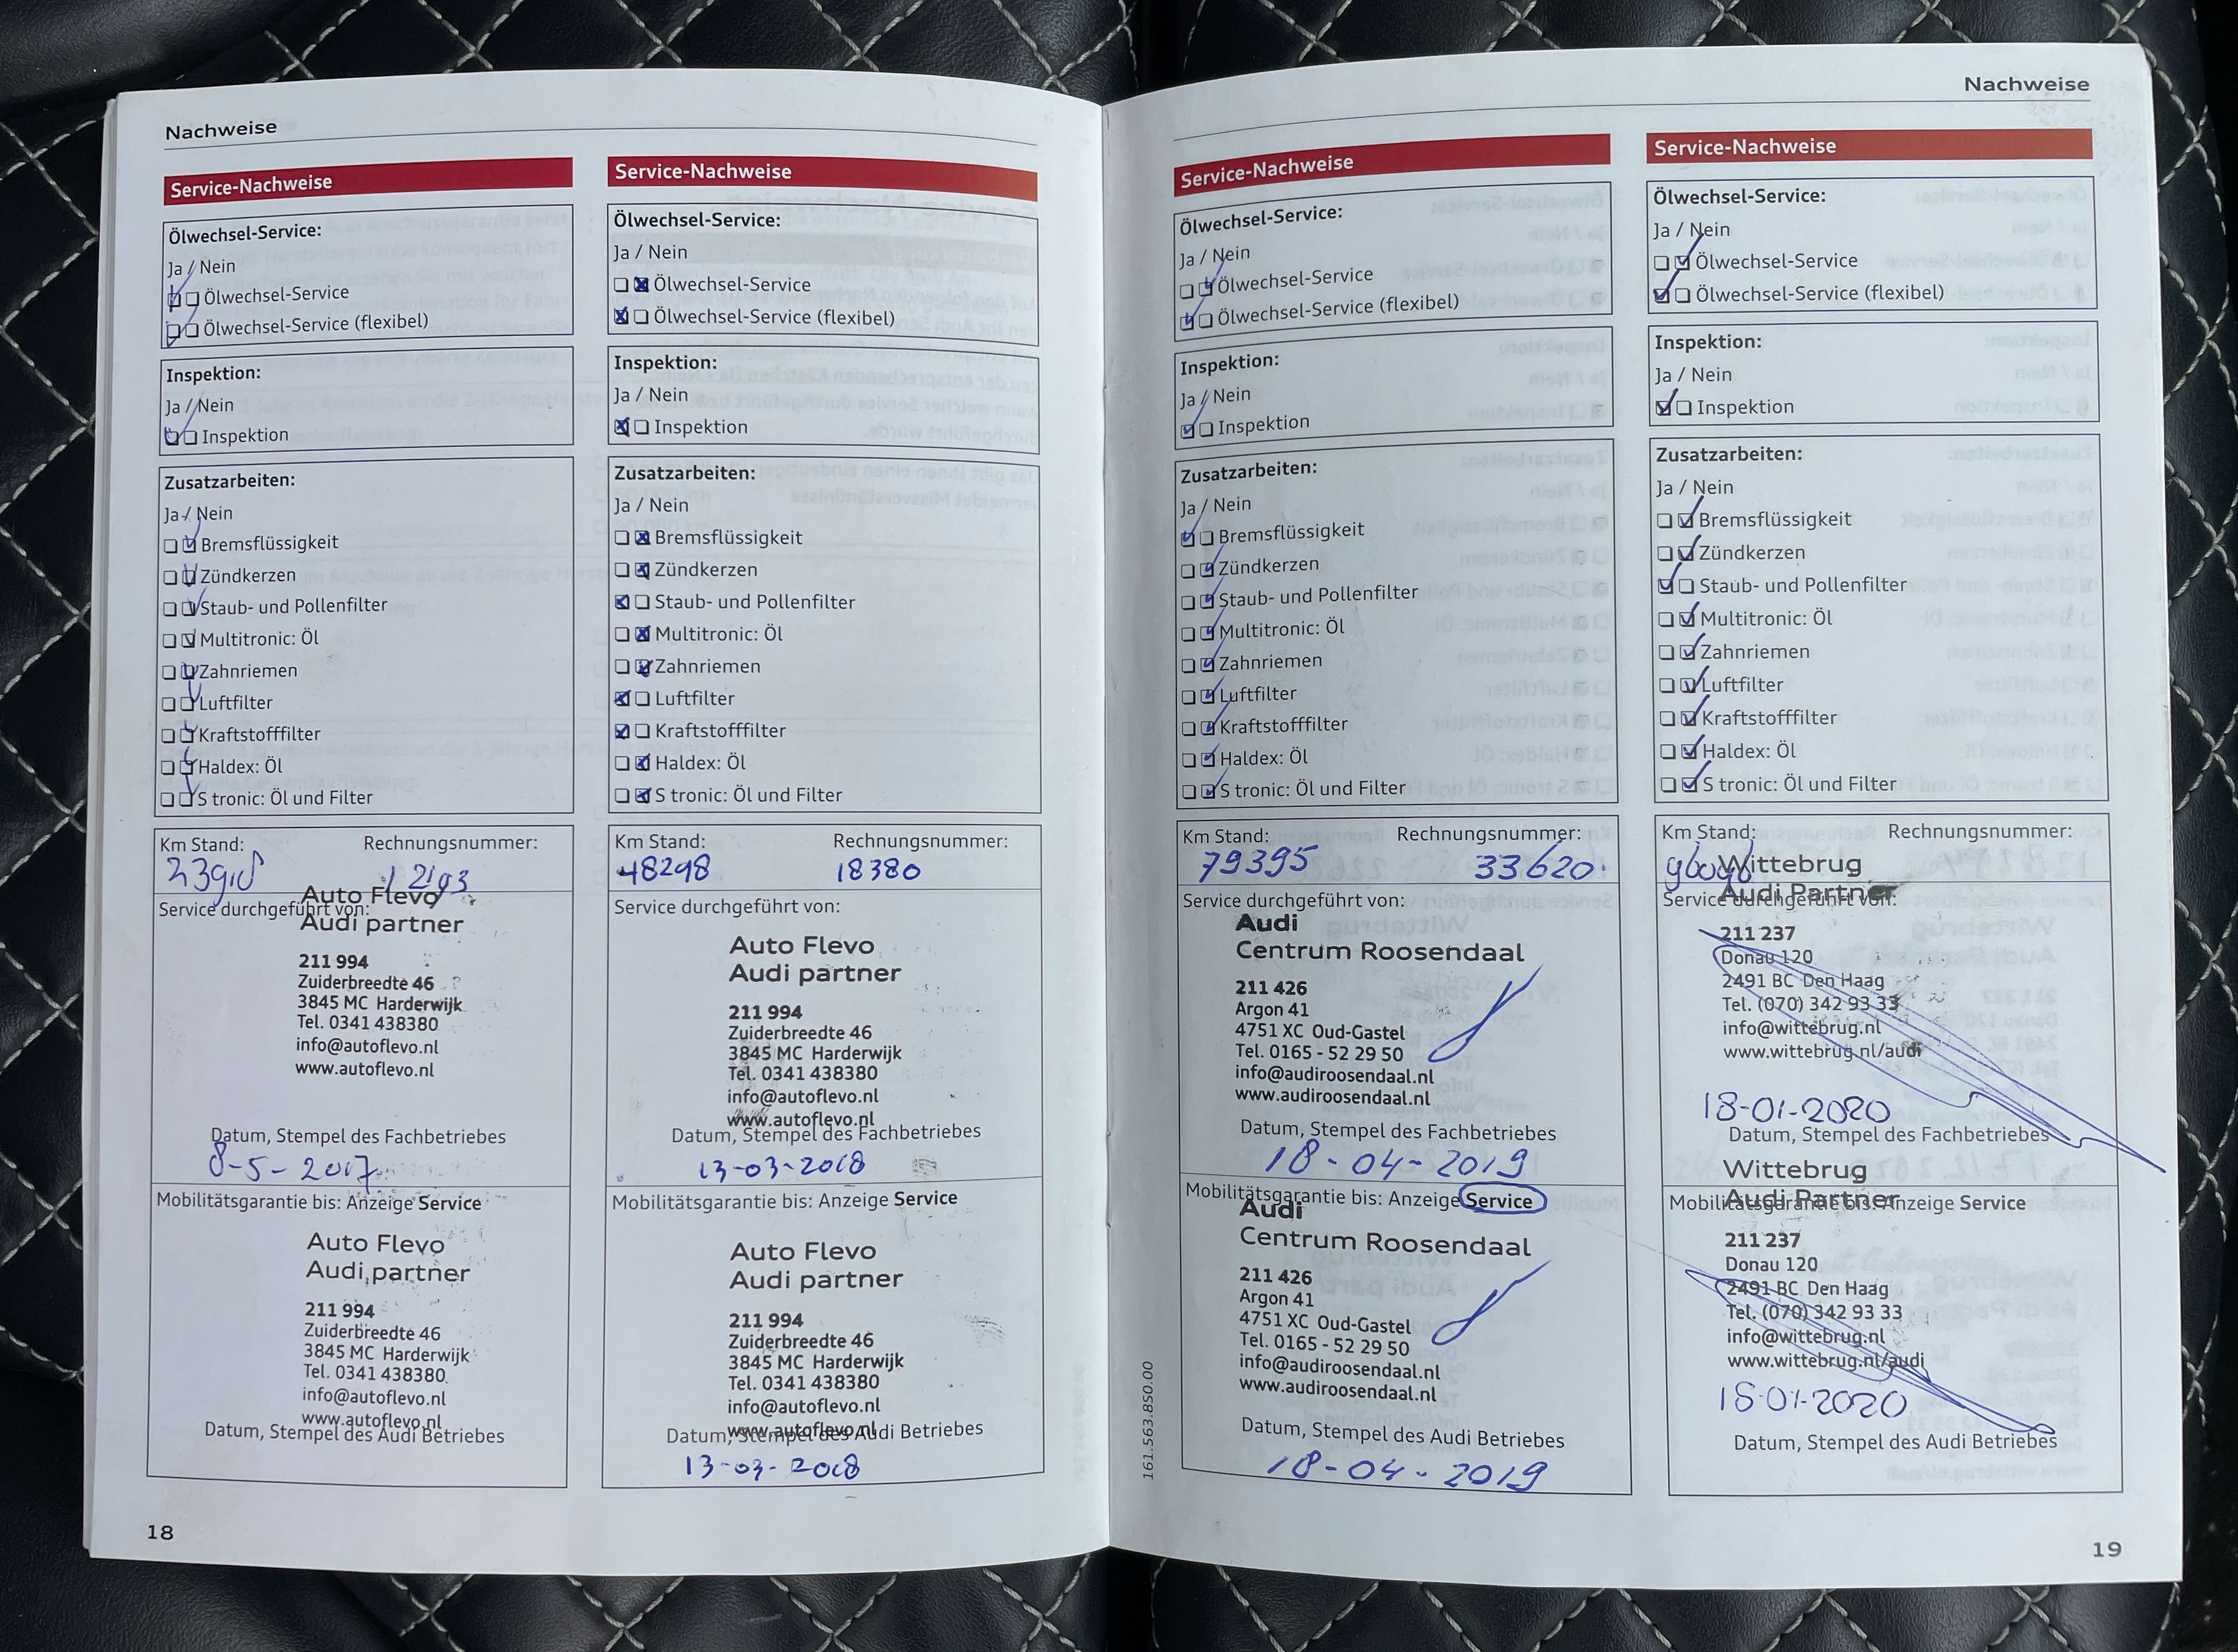 Nachweise
Service-Nachweise
Ölwechsel-Service:
Ja / Nein
Ölwechsel-Service
Ölwechsel-Service (flexibel)
Inspektion:
Ja / Nein
Inspektion
Zusatzarbeiten:
Ja / Nein
Bremsflüssigkeit
Zündkerzen
Staub- und Pollenfilter
Multitronic: Öl
Zahnriemen
Luftfilter
Kraftstofffilter
Haldex: Öl
S tronic: Öl und Filter
Km Stand: Rechnungsnummer:
Service durchgeführt von:
Auto Flevo
Audi partner
211 994
Zuiderbreedte 46
3845 MC Harderwijk
Tel. 0341 438380
info@autoflevo.nl
www.autoflevo.nl
Datum, Stempel des Fachbetriebes
8-5-2017
Mobilitätsgarantie bis: Anzeige Service
Auto Flevo
Audi partner
211 994
Zuiderbreedte 46
3845 MC Harderwijk
Tel. 0341 438380
info@autoflevo.nl
www.autoflevo.nl
Datum, Stempel des Audi Betriebes
18
Service-Nachweise
Ölwechsel-Service:
Ja / Nein
Ölwechsel-Service
Ölwechsel-Service (flexibel)
Inspektion:
Ja / Nein
Inspektion
Zusatzarbeiten:
Ja / Nein
Bremsflüssigkeit
Zündkerzen
Staub- und Pollenfilter
Multitronic: Öl
Zahnriemen
Luftfilter
Kraftstofffilter
Haldex: Öl
S tronic: Öl und Filter
Km Stand: Rechnungsnummer:
48298 18380
Service durchgeführt von:
Auto Flevo
Audi partner
211 994
Zuiderbreedte 46
3845 MC Harderwijk
Tel. 0341 438380
info@autoflevo.nl
www.autoflevo.nl
Datum, Stempel des Fachbetriebes
13-03-2018
Mobilitätsgarantie bis: Anzeige Service
Auto Flevo
Audi partner
211 994
Zuiderbreedte 46
3845 MC Harderwijk
Tel. 0341 438380
info@autoflevo.nl
www.autoflevo.nl
Datum, Stempel des Audi Betriebes
13-03-2018
Nachweise
Service-Nachweise
Ölwechsel-Service:
Ja / Nein
Ölwechsel-Service
Ölwechsel-Service (flexibel)
Inspektion:
Ja / Nein
Inspektion
Zusatzarbeiten:
Ja / Nein
Bremsflüssigkeit
Zündkerzen
Staub- und Pollenfilter
Multitronic: Öl
Zahnriemen
Luftfilter
Kraftstofffilter
Haldex: Öl
S tronic: Öl und Filter
Km Stand: Rechnungsnummer:
79395 33620.
Service durchgeführt von:
Audi
Centrum Roosendaal
211 426
Argon 41
4751 XC Oud-Gastel
Tel. 0165 - 52 29 50
info@audiroosendaal.nl
www.audiroosendaal.nl
Datum, Stempel des Fachbetriebes
18-04-2019
Mobilitätsgarantie bis: Anzeige Service
Audi
Centrum Roosendaal
211 426
Argon 41
4751 XC Oud-Gastel
Tel. 0165 - 52 29 50
info@audiroosendaal.nl
www.audiroosendaal.nl
Datum, Stempel des Audi Betriebes
18-04-2019
161.563.850.00
Service-Nachweise
Ölwechsel-Service:
Ja / Nein
Ölwechsel-Service
Ölwechsel-Service (flexibel)
Inspektion:
Ja / Nein
Inspektion
Zusatzarbeiten:
Ja / Nein
Bremsflüssigkeit
Zündkerzen
Staub- und Pollenfilter
Multitronic: Öl
Zahnriemen
Luftfilter
Kraftstofffilter
Haldex: Öl
S tronic: Öl und Filter
Km Stand: Rechnungsnummer:
Wittebrug
Audi Partner
Service durchgeführt von:
211 237
Donau 120
2491 BC Den Haag
Tel. (070) 342 93 33
info@wittebrug.nl
www.wittebrug.nl/audi
18-01-2020
Datum, Stempel des Fachbetriebes
Wittebrug
Audi Partner
Mobilitätsgarantie bis: Anzeige Service
211 237
Donau 120
2491 BC Den Haag
Tel. (070) 342 93 33
info@wittebrug.nl
www.wittebrug.nl/audi
18-01-2020
Datum, Stempel des Audi Betriebes
19